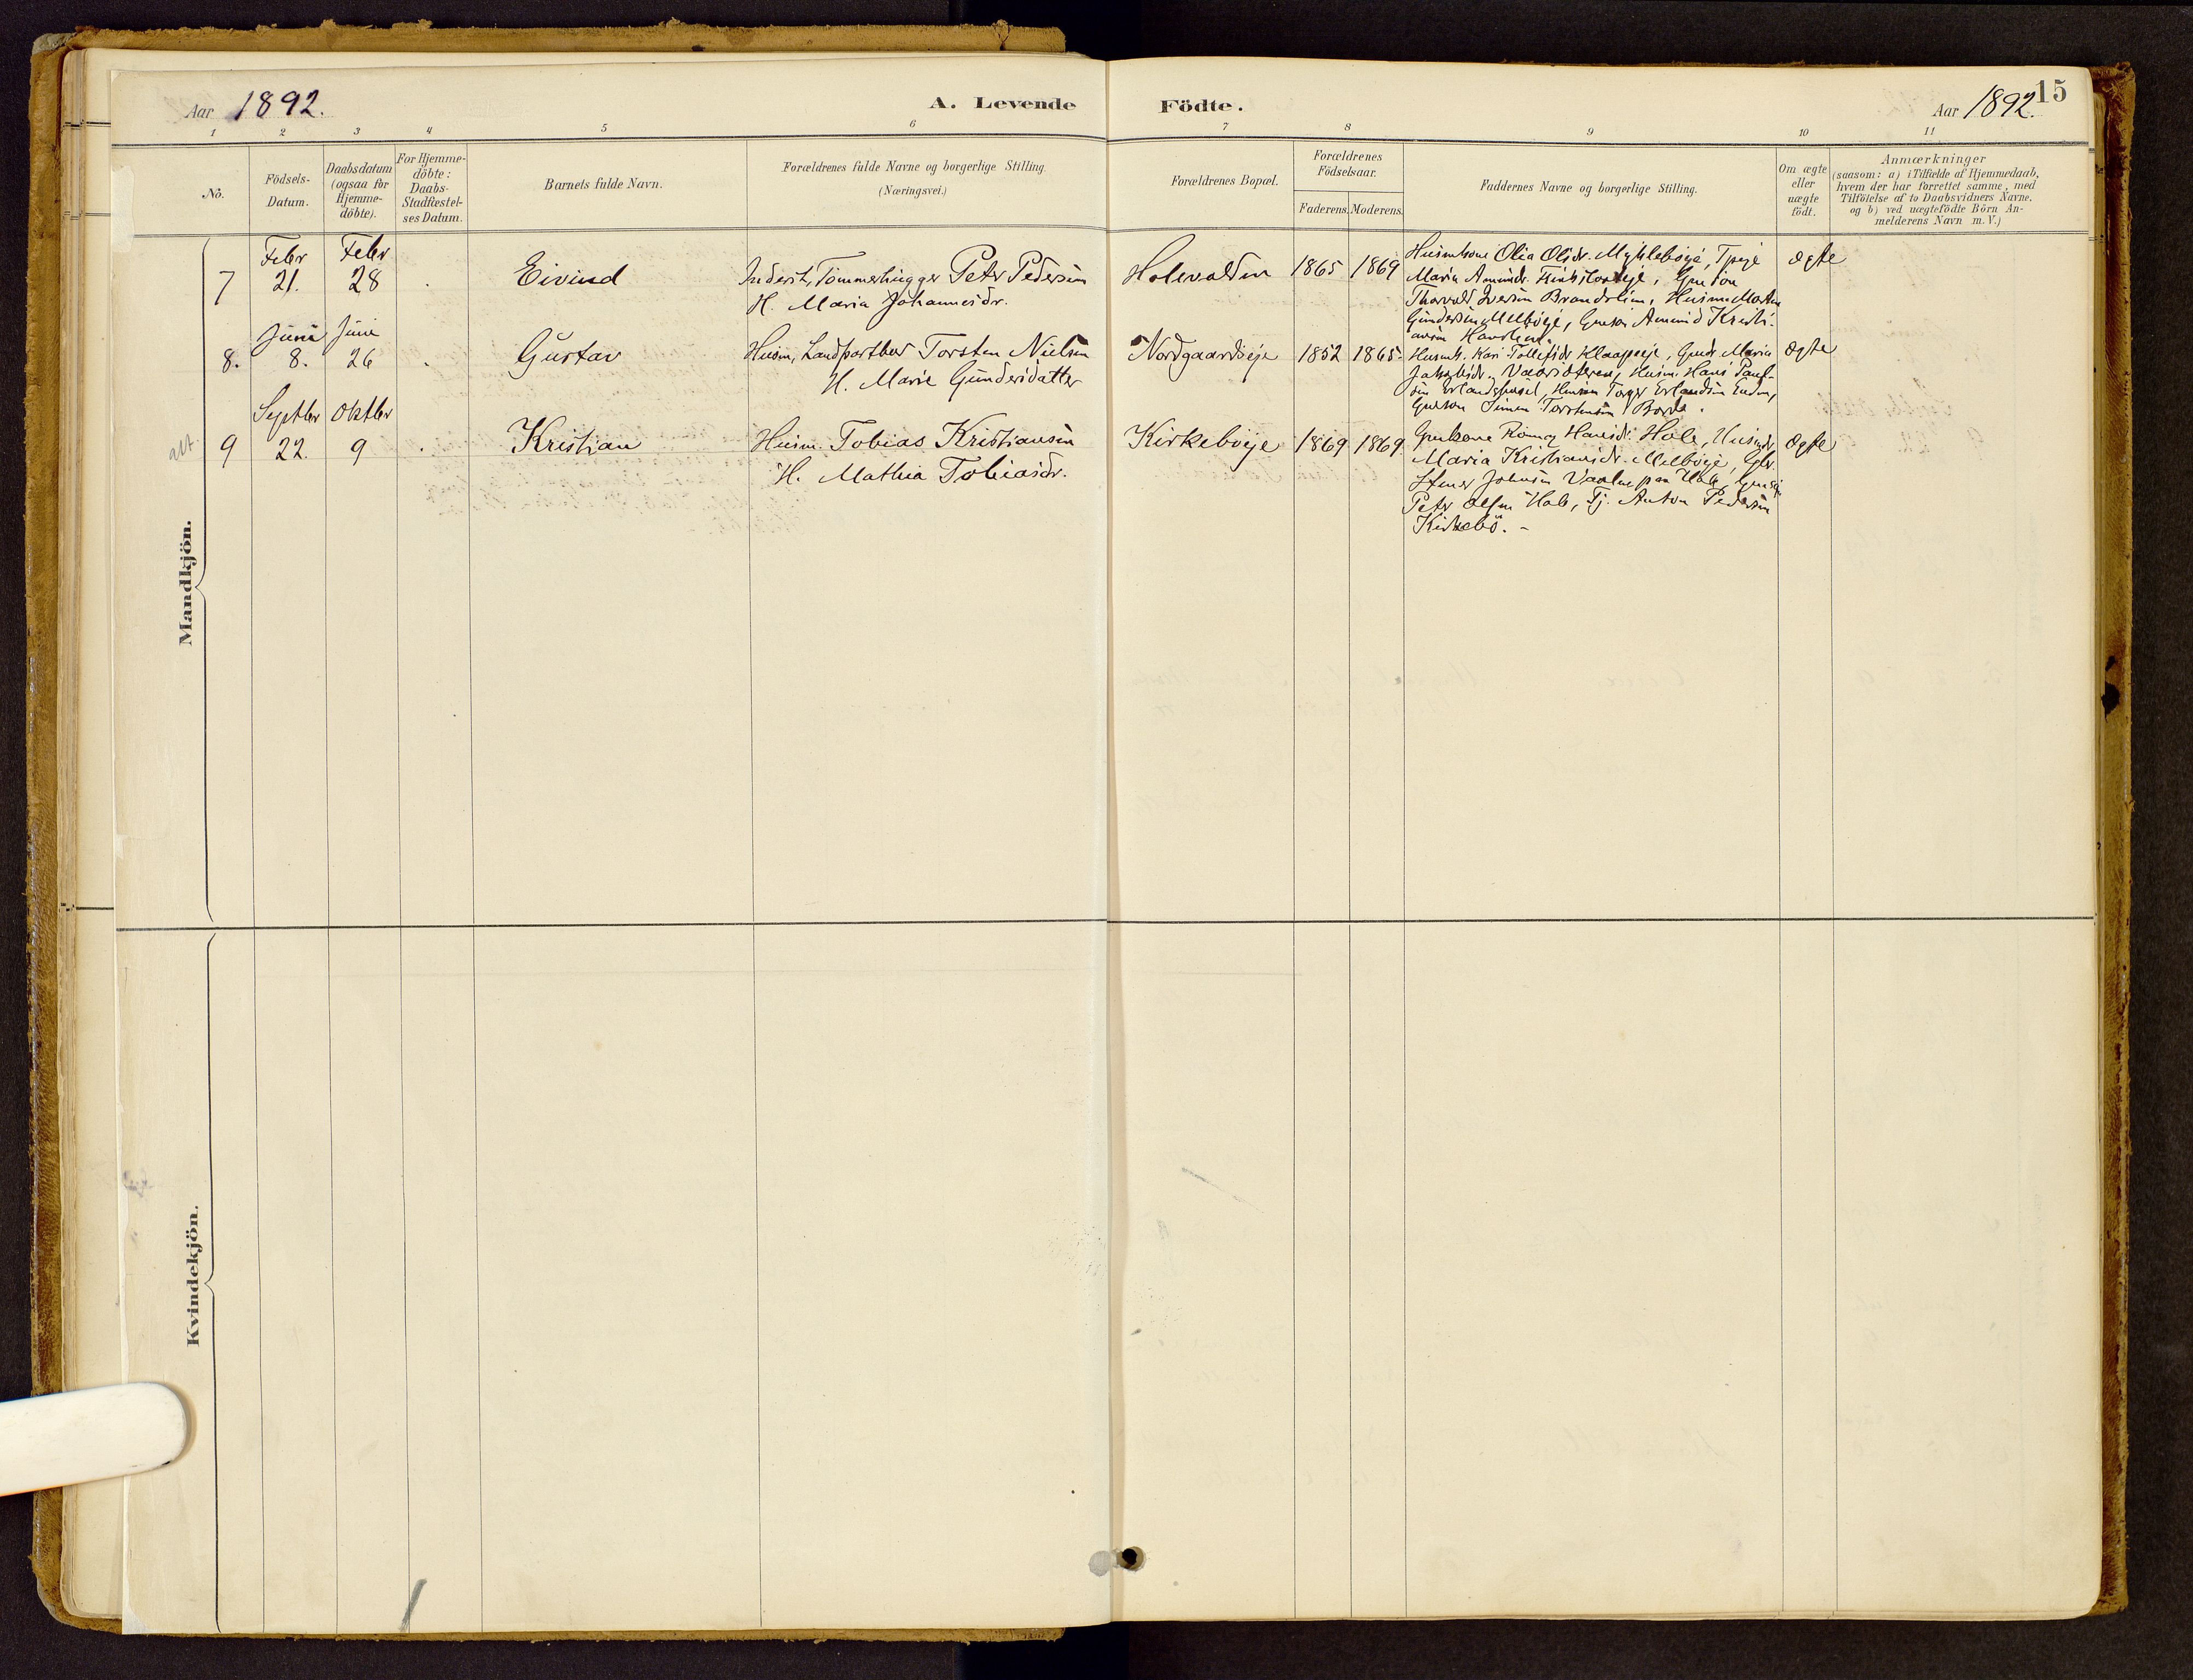 Aar 1892.
A. Levende
Födte.
Aar 1892.
15
1 2 3 4 5 6 7 8 9 10 11
No.
Födsels-
Datum.
Daabsdatum
(ogsaa for
Hjemme-
döbte).
For Hjemme-
döbte:
Daabs-
Stadfæstel-
ses Datum.
Barnets fulde Navn.
Forældrenes fulde Navne og borgerlige Stilling
(Næringsvei.)
Forældrenes Bopæl.
Forældrenes
Födselsaar.
Faderens. Moderens.
Faddernes Navne og borgerlige Stilling.
Om ægte
eller
uægte
födt.
Anmærkninger
(saasom: a) i Tilfælde af Hjemmedaab,
hvem der har forrettet samme, med
Tilföielse af to Daabsvidners Navne.
og b) ved uægtefödte Börn An-
melderens Navn m. V.)
Mandkjön.
Febr Febr
7 21. 28 Eivind
Inderst, Tömmerhugger Peter Pedersen
H. Maria Johannesdr.
Holevolden 1865 1869
Husmkone Olia Olsdr. Mykleböeje,
Maria Amundr.
Thorvald Iversen Brandslien, Husm. Martin
Gundersen Melböeje, Gmksön Amund Kristi-
ansen
ægte
Juni Juni
8. 8. 26 Gustav
Husm, Landpostbud Torsten Nielsen
H. Marie Gundersdatter
Nordgaardseje 1852 1865.
Kari Tollefsdr. Maria
Jakobsdr. Husm. Hans Paul-
sen Erlandshusel, Torger Erlandsen
Simen Torstensen
ægte
Septbr Oktbr
att
9 22. 9 Kristian
Husm. Tobias Kristiansen
H. Mathea Tobiasdr.
Kirkeböeje 1869 1869.
Ronnog Hansdr. Hole,
Maria Kristiansdr. Melböeje,
Johnsen
Peter Olsen Hole, Tj. Anton Pedersen
Kirkebö. -
ægte
Kvindekjön.